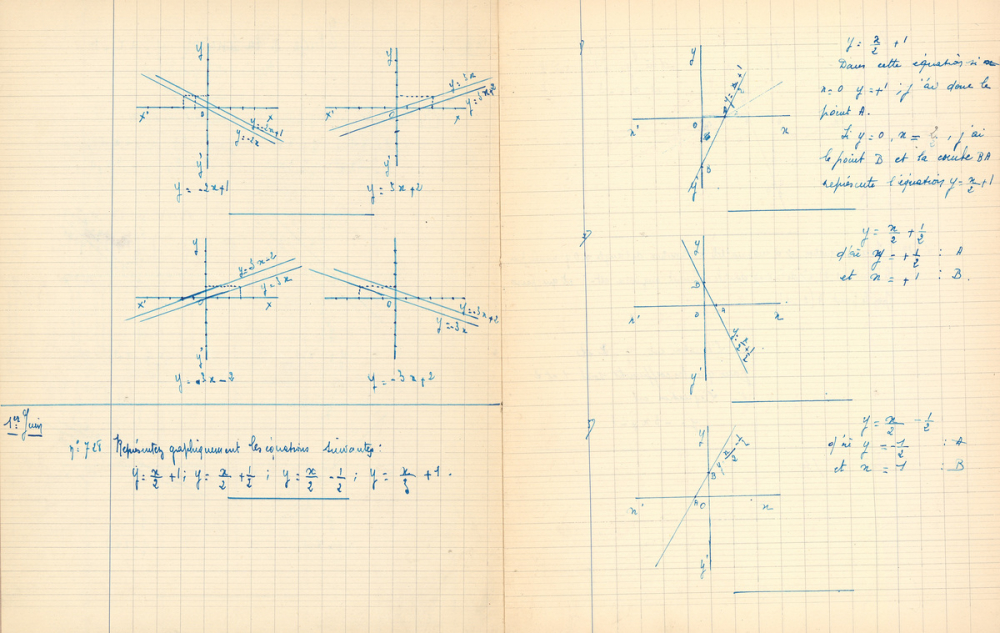 y
y
x'
o
x
y=-2x+1
y=-2x
y'
y=-2x+1
x'
x
y=3x
y=3x+2
y'
y=3x+2
y
y=3x-2
y=3x
x'
x
y'
y=3x-2
o
y=-3x+2
y=-3x
y=-3x+2
1er Juin
n° 728 Représentez graphiquement les équations suivantes :
y=x/2 +1 ; y=x/2 +1/2 ; y=x/2 -1/2 ; y=x/3 +1 .
1)
y
x'
o
x
B
y'
y=x/2 +1
Dans cette équation si
x=0 y=+1 ; j'ai donc le
point A.
Si y=0, x= , j'ai
le point B et la droite BA
représente l'équation y=x/2 +1
y
x'
o
x
y'
y=x/2 +1/2
d'où y=+1/2 : A
et x=+1 : B.
y
x'
A
O
x
B
y'
y=x/2 -1/2
d'où y=-1/2 : A
et x=1 : B